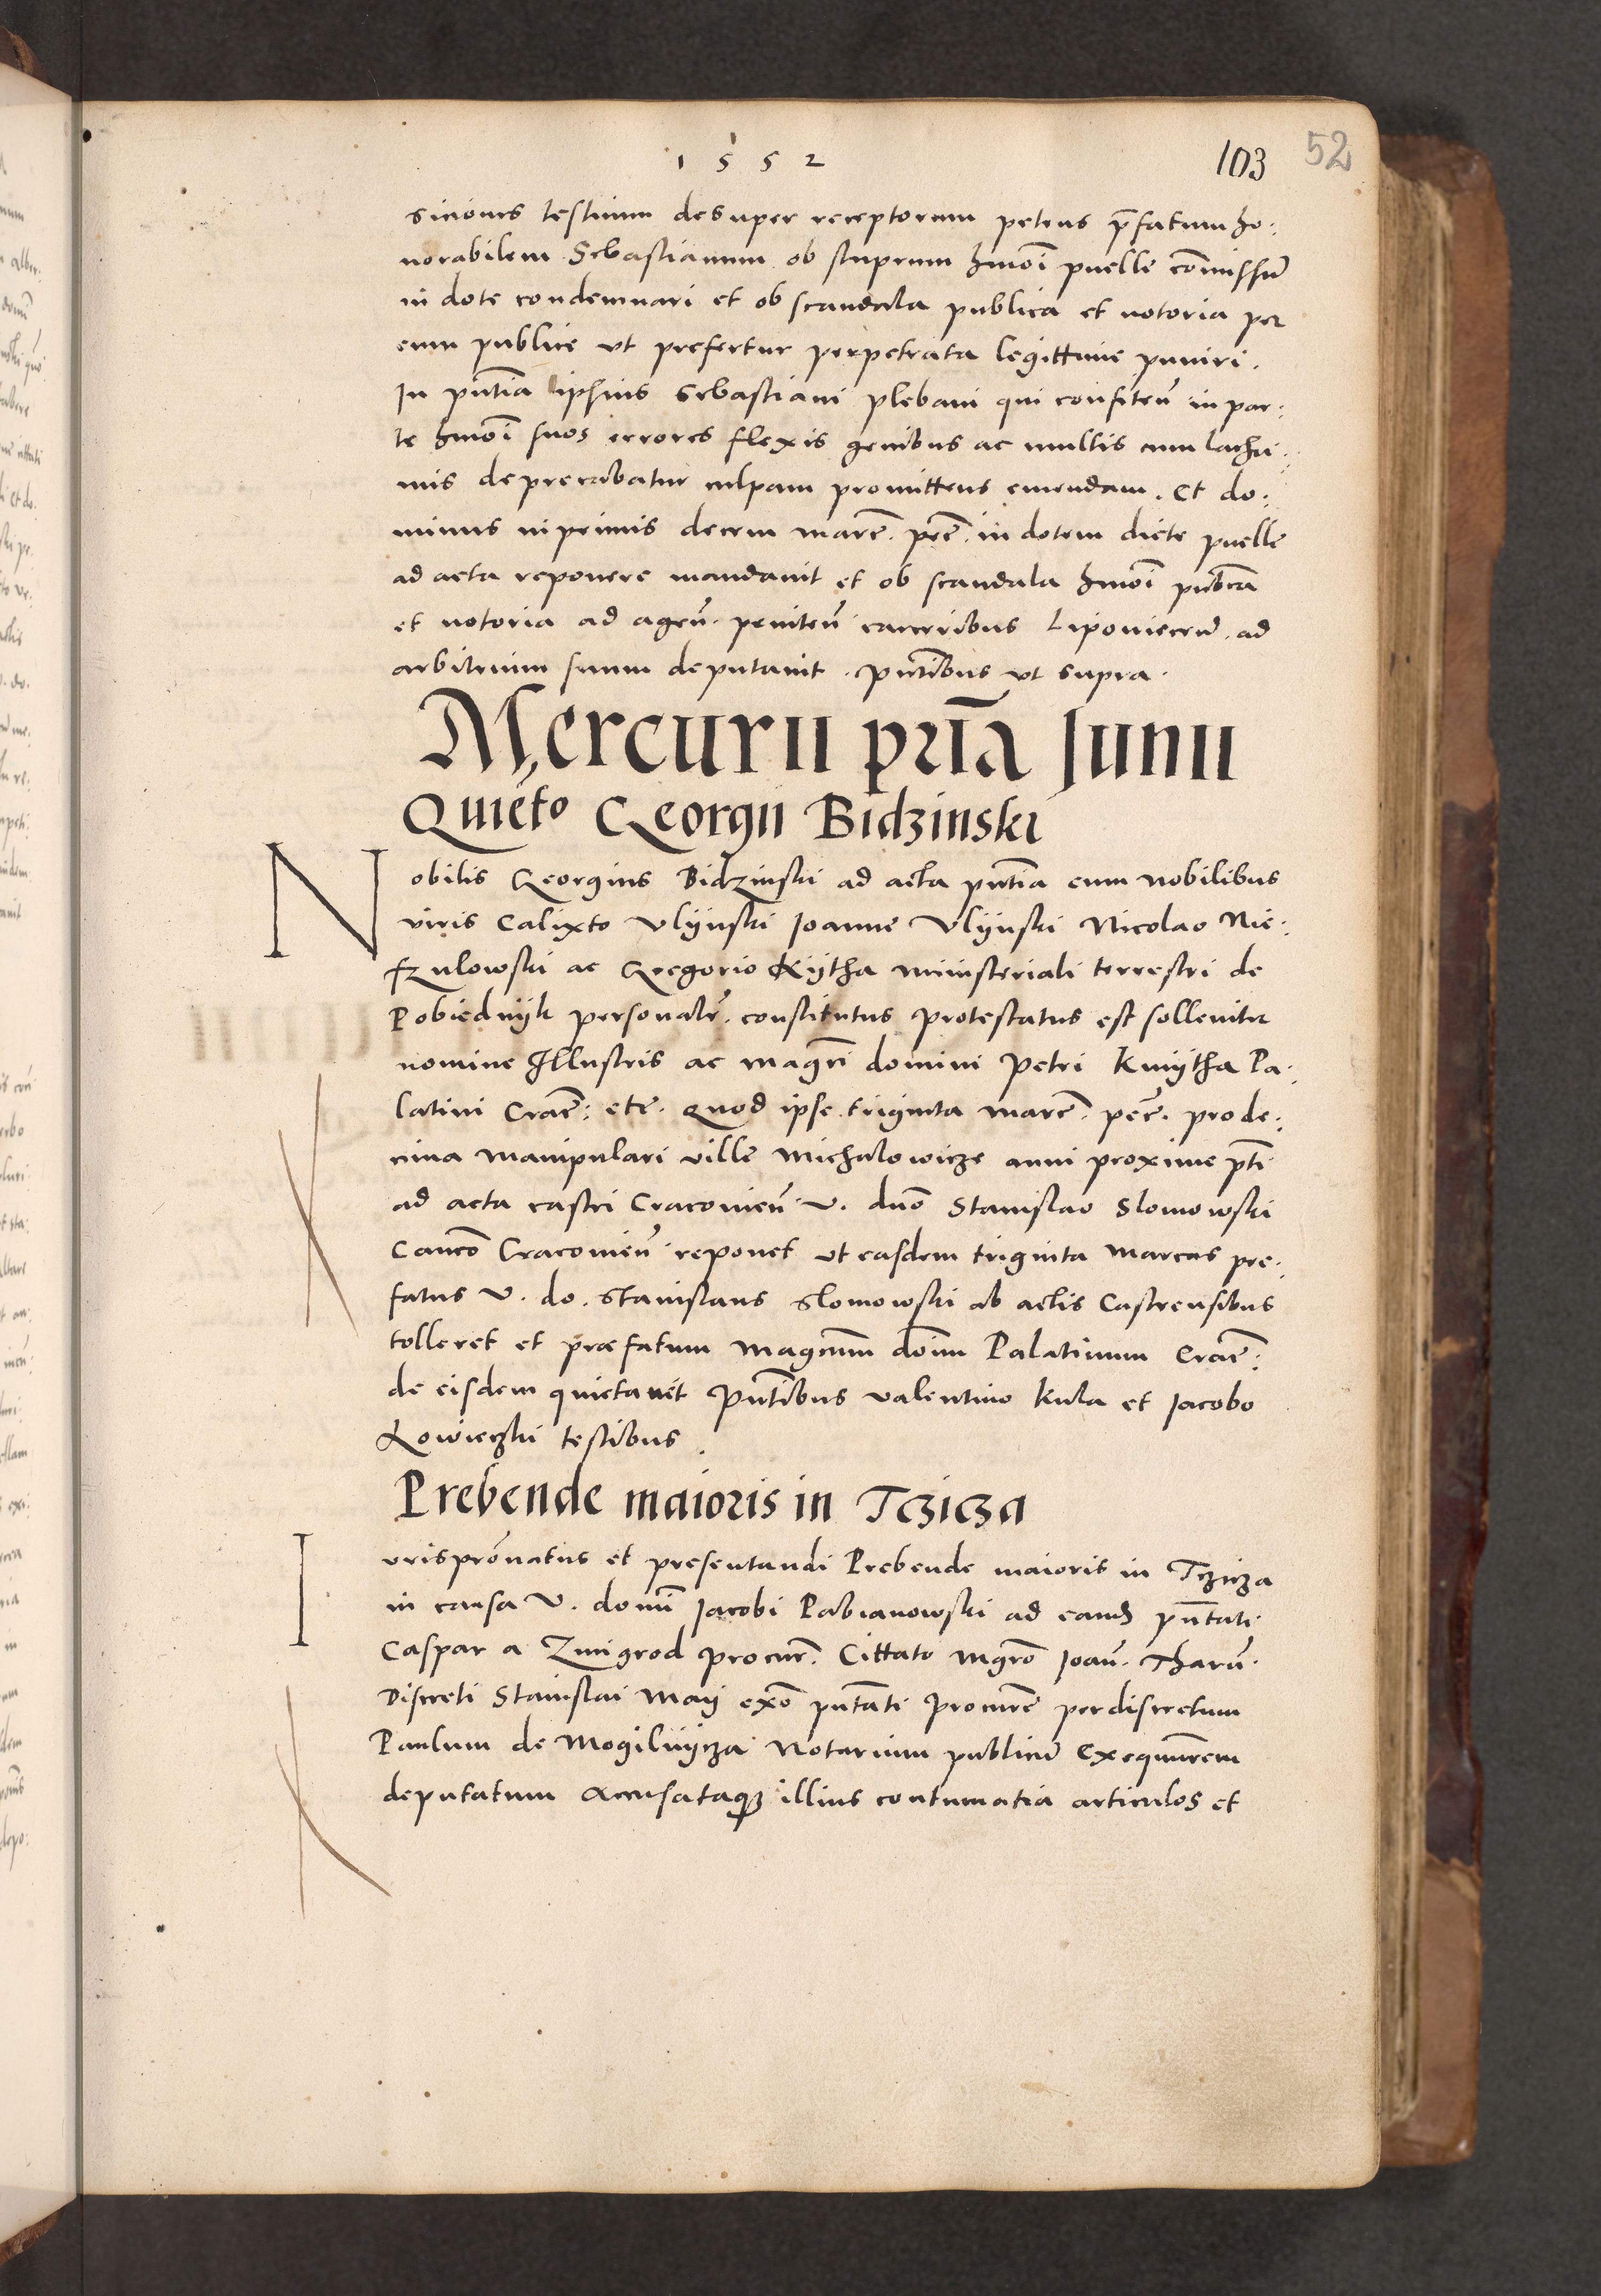 1552
103 52
siciones testium desuper receptorum petens p̄fatum ho:
norabilem Sebastianum ob stuprum hmōi puelle cōmissū
in dote condemnari et ob scandala publica et notoria per
eum publice vt prefertur perpetrata legittime puniri.
In pn̄tia ipsius Sebastiani plebani qui confiteñ in par:
te hmōi suos errores flexis genibus ac multis cum lachri:
mis deprecabatur culpam promittens emendam. Et do:
minus inprimis decem marc̄. pec̄. in dotem dicte puelle
ad acta reponere mandauit et ob scandala hmōi pub̄ca
et notoria ad ageñ. peniteñ carceribus Lipouiecen̄. ad
arbitrium suum deputauit. pn̄tibus vt supra.
Mercurii pri͞a Junii
Quieto Georgii Bidzinski
Nobilis Georgius Bidzinski ad acta pn̄tia cum nobilibus
viris Calixto Vlijnski Joanne Vlijnski Nicolao Nie:
ſzulowski ac Gregorio Kijtha ministeriali terrestri de
Pobiednijk personalr̄. constitutus protestatus est sollenitr̄
nomine Illustris ac magc̄i domini Petri Kmijtha Pa:
latini Crac̄: etc̄. quod ipse triginta marc̄. pec̄. pro de:
cima manipulari ville Michalowicze anni proxime pt̄i
ad acta castri Cracouieñ v. dn̄o Stanislao Slomowski
Canco̅ Cracouieñ reponet vt easdem triginta marcas pre:
fatus v. do. Stanislaus Slomowski ab actis Castrensibus
tolleret et præfatum magcum̄ do͞im Palatinum Crac̄:
de eisdem quietauit pn̄tibus Valentino Kula et Jacobo
Lowieczki testibus.
Prebende maioris in Tczicza
Iurispr̄onatus et presentandi Prebende maioris in Tczicza
in causa v. domi͞ Jacobi Pabianowski ad eand̄ pn̄tati
Caspar a Zmigrod procur̄. Cittato mgr̄o Joañ. Tharū.
Discreti Stanislai Maij exo͞ pn̄tati procur̄e per discretum
Paulum de Mogilnijcza Notarium publicū exequutrem
deputatum Accusataqȝ illius contumatia articulos et